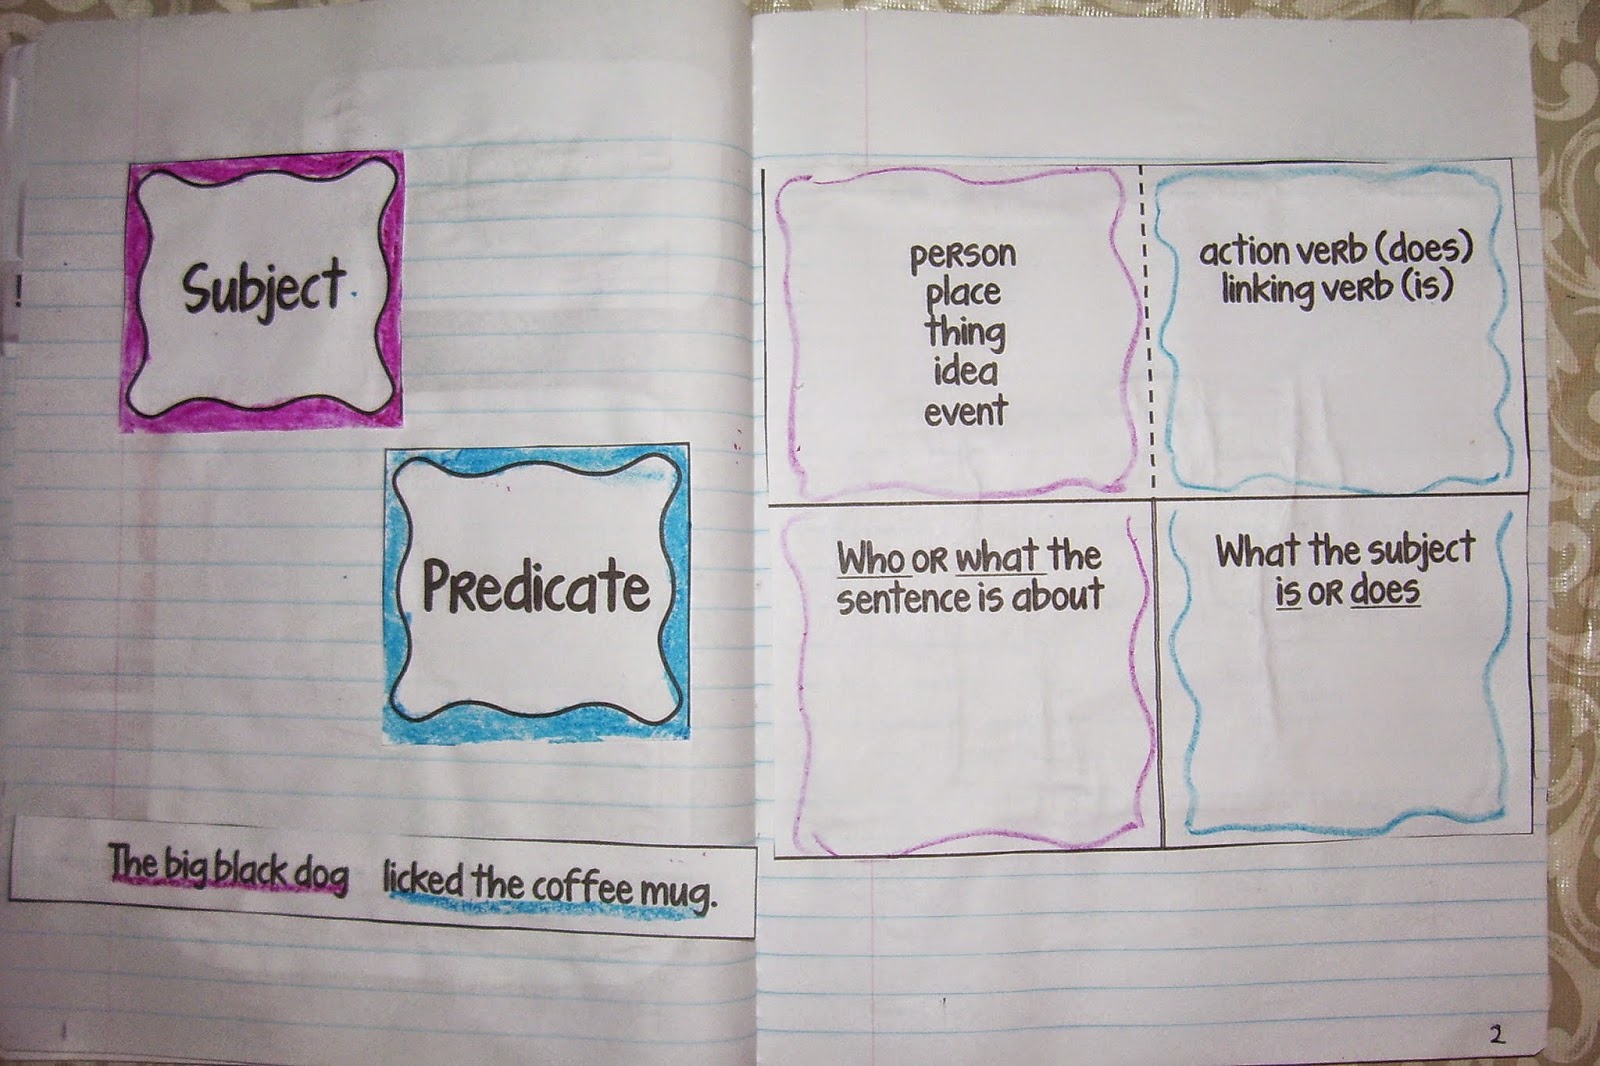 Subject
Predicate
The big black dog licked the coffee mug.
1
person
place
thing
idea
event
action verb (does)
linking verb (is)
Who or what the
sentence is about
What the subject
is or does
2